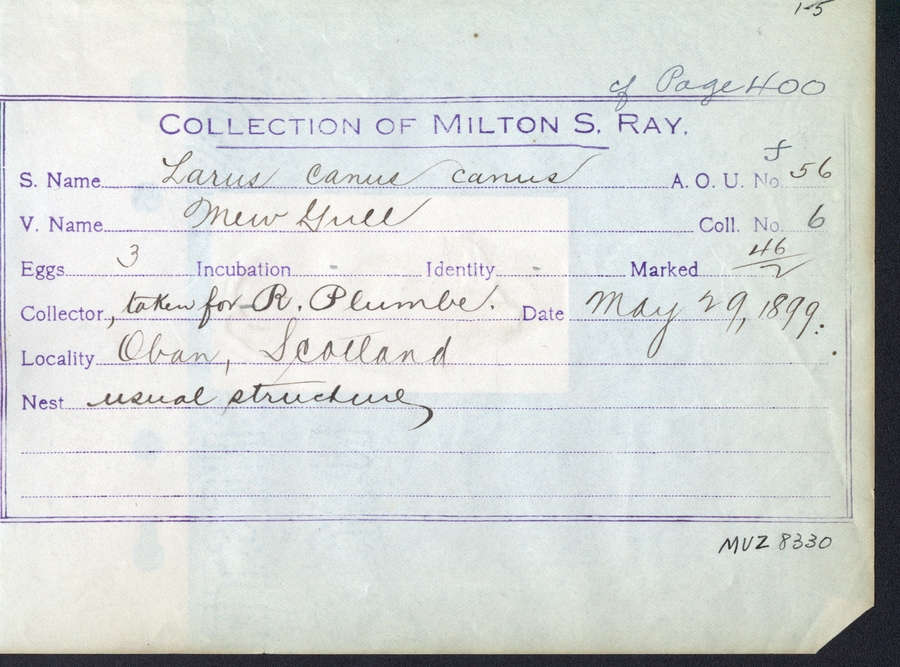 1-5
of Page 400
COLLECTION OF MILTON S. RAY.
S. Name Larus canus canus A. O. U. No. 56
V. Name Mew Gull Coll. No. 6
Eggs 3 Incubation - Identity - Marked 46/2
Collector, taken for R. Plumbe. Date May 29, 1899.
Locality Oban, Scotland
Nest usual structure
MVZ 8330